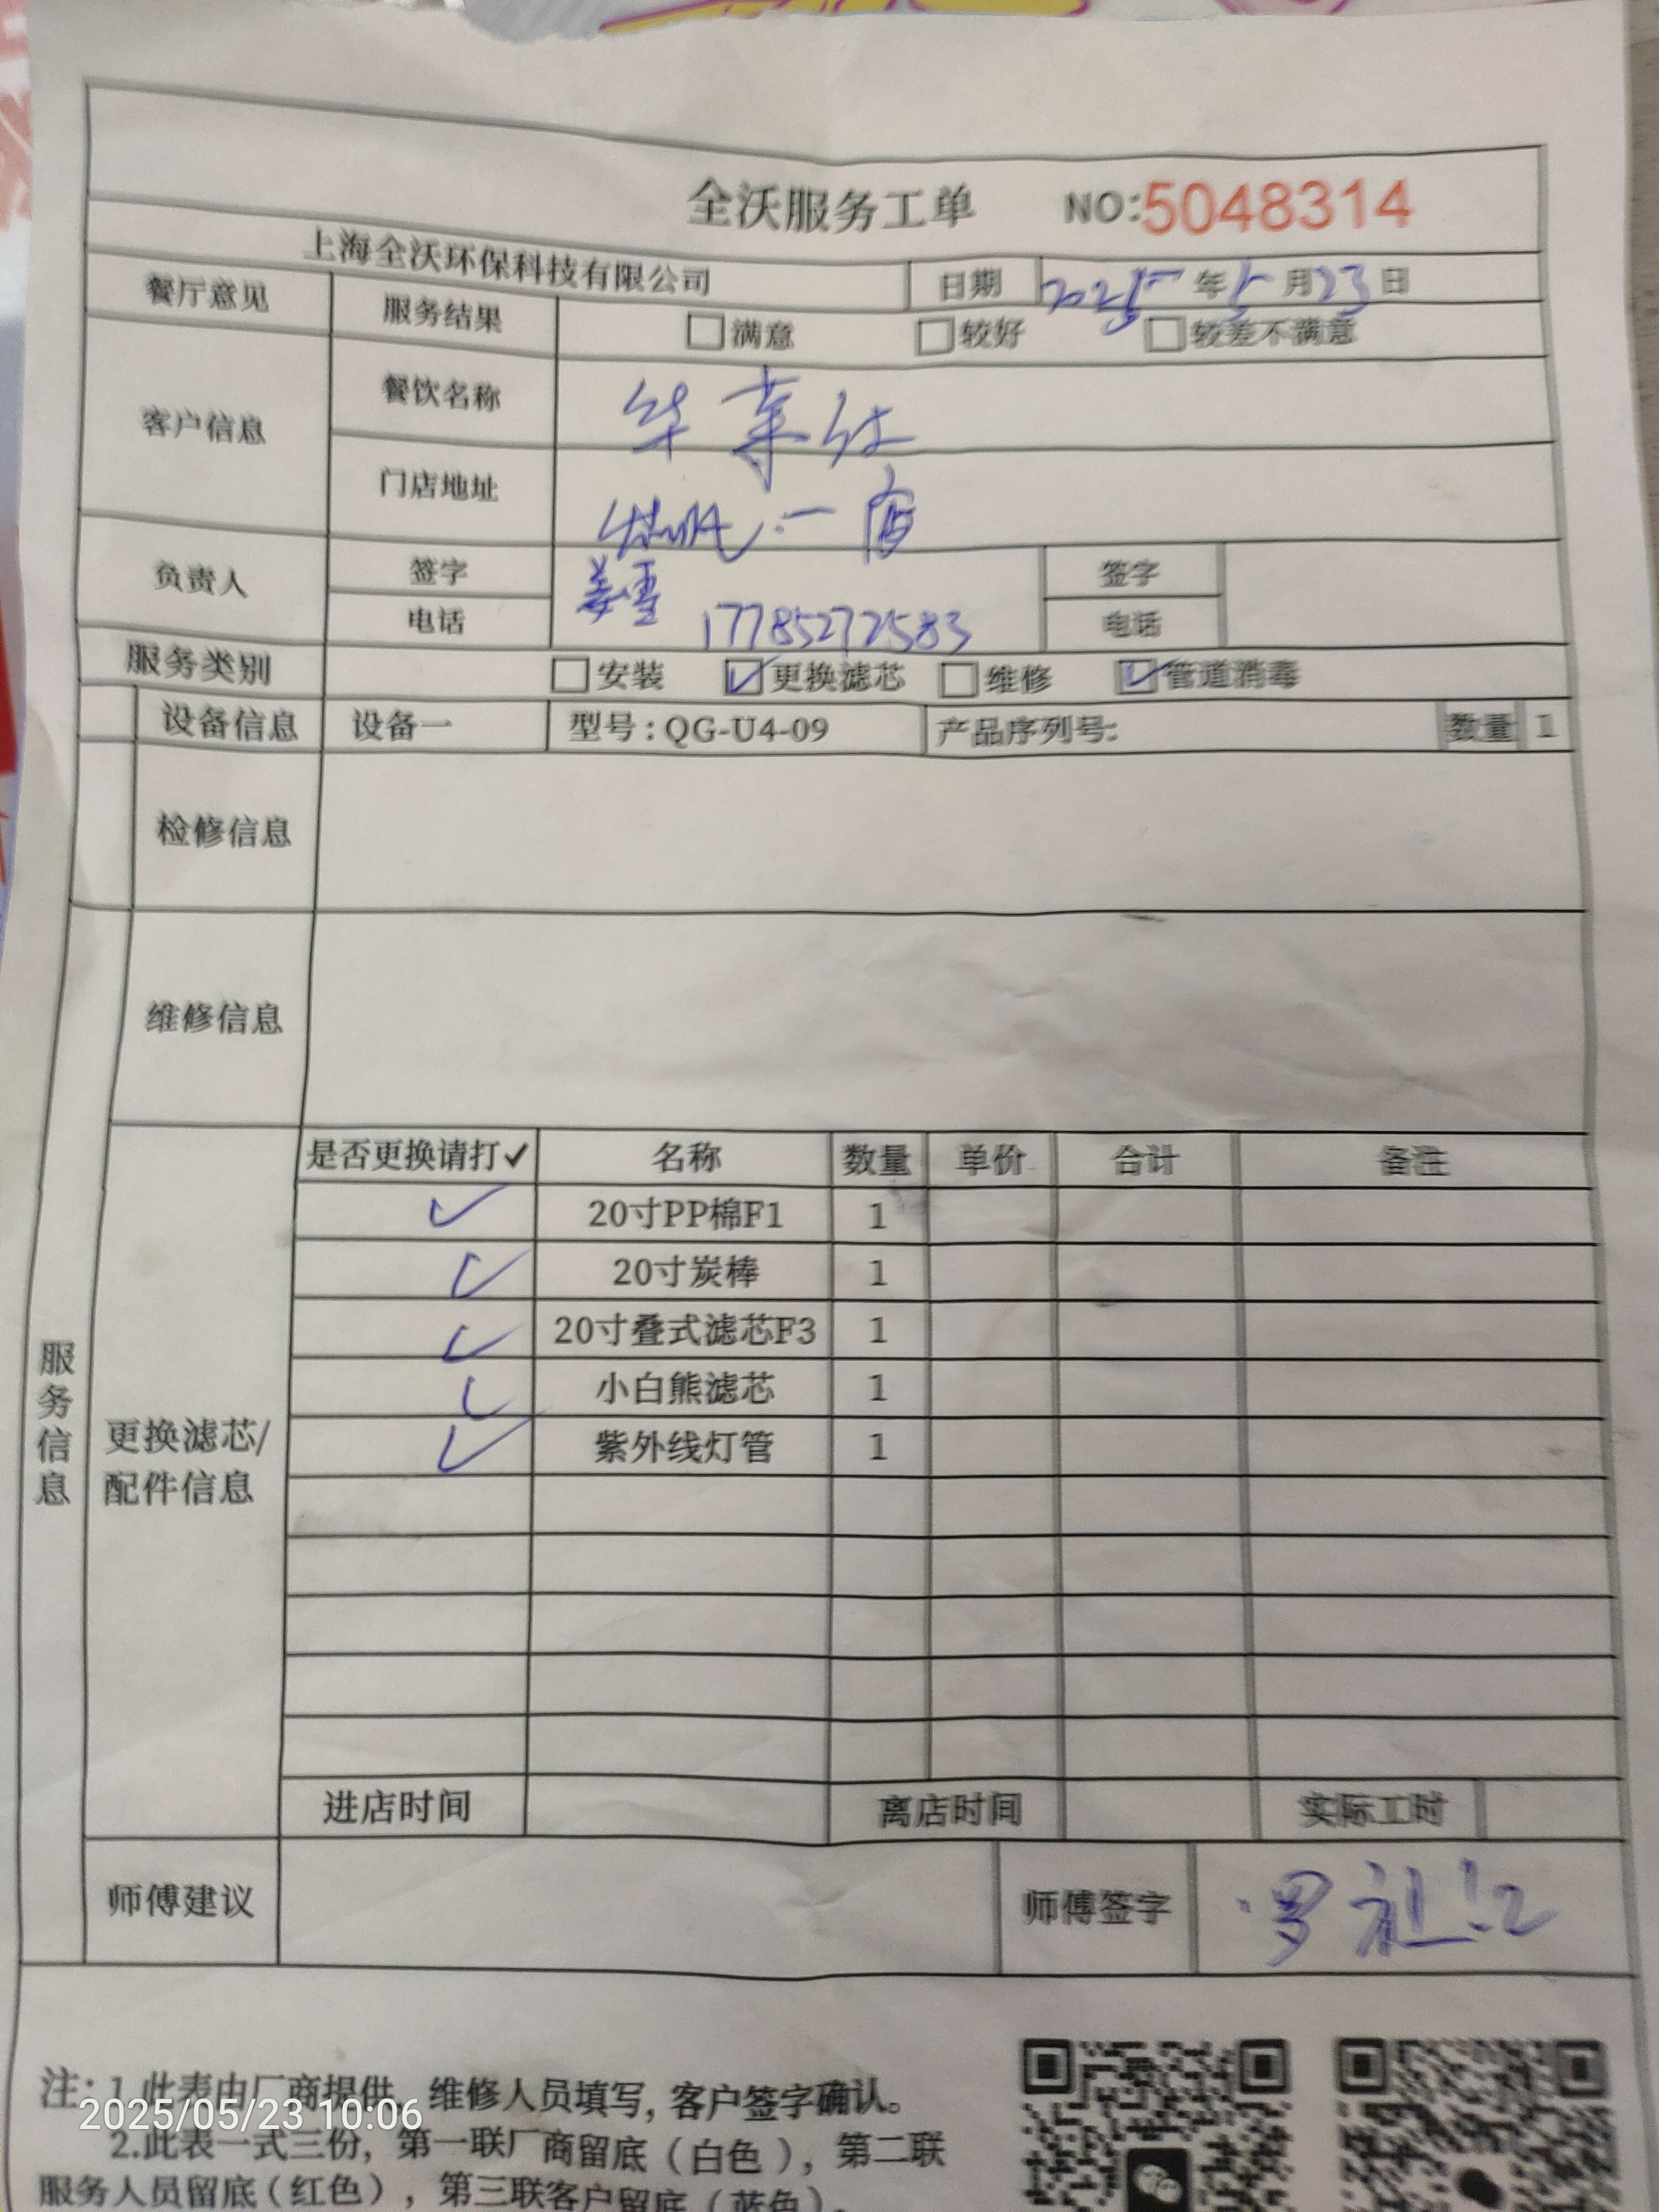 全沃服务工单 NO:5048314
上海全沃环保科技有限公司 日期 2025年5月23日
餐厅意见 服务结果 满意 较好 较差不满意
客户信息 餐饮名称 华莱仕
门店地址 一店
负责人 签字 姜雪 签字
电话 17785272583 电话
服务类别 安装 ✓更换滤芯 维修 ✓管道消毒
设备信息 设备一 型号:QG-U4-09 产品序列号: 数量 1
检修信息
维修信息
服务信息
更换滤芯/
配件信息
是否更换请打✓ 名称 数量 单价 合计 备注
✓ 20寸PP棉F1 1
✓ 20寸炭棒 1
✓ 20寸叠式滤芯F3 1
✓ 小白熊滤芯 1
✓ 紫外线灯管 1
进店时间 离店时间 实际工时
师傅建议 师傅签字 罗
注:1.此表由厂商提供、维修人员填写,客户签字确认。
2025/05/23 10:06
2.此表一式三份,第一联厂商留底(白色),第二联
服务人员留底(红色),第三联客户留底(蓝色)。